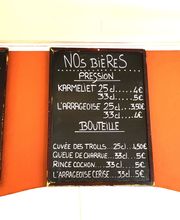 NOS BIÈRES
PRESSION
KARMELIET 25cl.....4€
33cl.....5€
L'ARRAGEOISE 25cl...3,50€
33cl.....4€
BOUTEILLE
CUVÉE DES TROLLS...25cl....4,50€
QUEUE DE CHARRUE...33cl...5€
RINCE COCHON....33cl...5€
L'ARRAGEOISE CERISE...33cl..5€